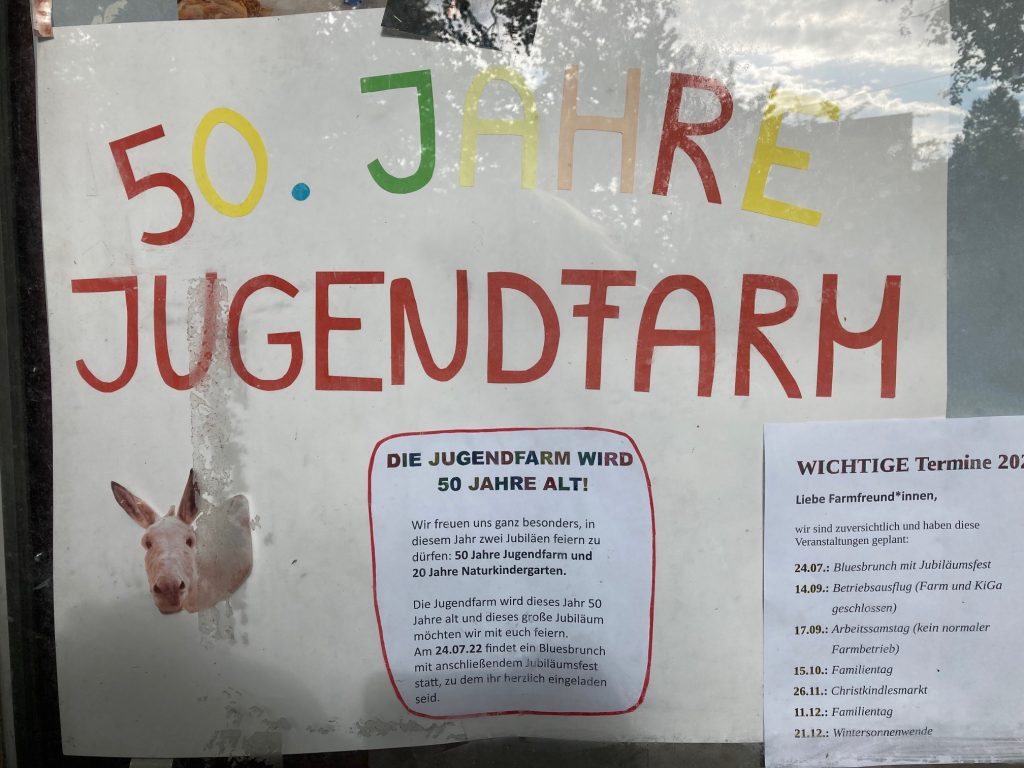 50. JAHRE
JUGENDFARM
DIE JUGENDFARM WIRD
50 JAHRE ALT!
Wir freuen uns ganz besonders, in
diesem Jahr zwei Jubiläen feiern zu
dürfen: 50 Jahre Jugendfarm und
20 Jahre Naturkindergarten.
Die Jugendfarm wird dieses Jahr 50
Jahre alt und dieses große Jubiläum
möchten wir mit euch feiern.
Am 24.07.22 findet ein Bluesbrunch
mit anschließendem Jubiläumsfest
statt, zu dem ihr herzlich eingeladen
seid.
WICHTIGE Termine
Liebe Farmfreund*innen,
wir sind zuversichtlich und haben diese
Veranstaltungen geplant:
24.07.: Bluesbrunch mit Jubiläumsfest
14.09.: Betriebsausflug (Farm und KiGa
geschlossen)
17.09.: Arbeitssamstag (kein normaler
Farmbetrieb)
15.10.: Familientag
26.11.: Christkindlesmarkt
11.12.: Familientag
21.12.: Wintersonnenwende